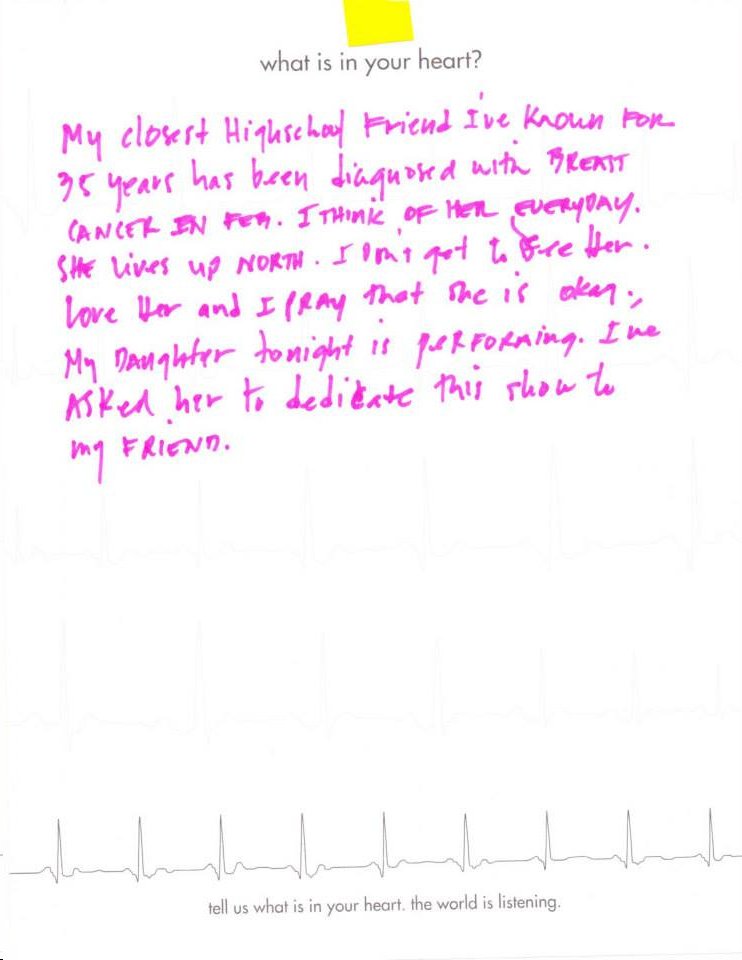 what is in your heart?
My closest Highschool Friend I've Known FOR
35 years has been diagnosed with BREAST
CANCER IN FEB. I THINK OF HER EVERYDAY.
SHE lives up NORTH. I Don't get to see Her.
Love Her and I PRAY that she is okay.
My Daughter tonight is PERFORMing. I've
ASKed her to dedicate this show to
my FRIEND.
tell us what is in your heart. the world is listening.